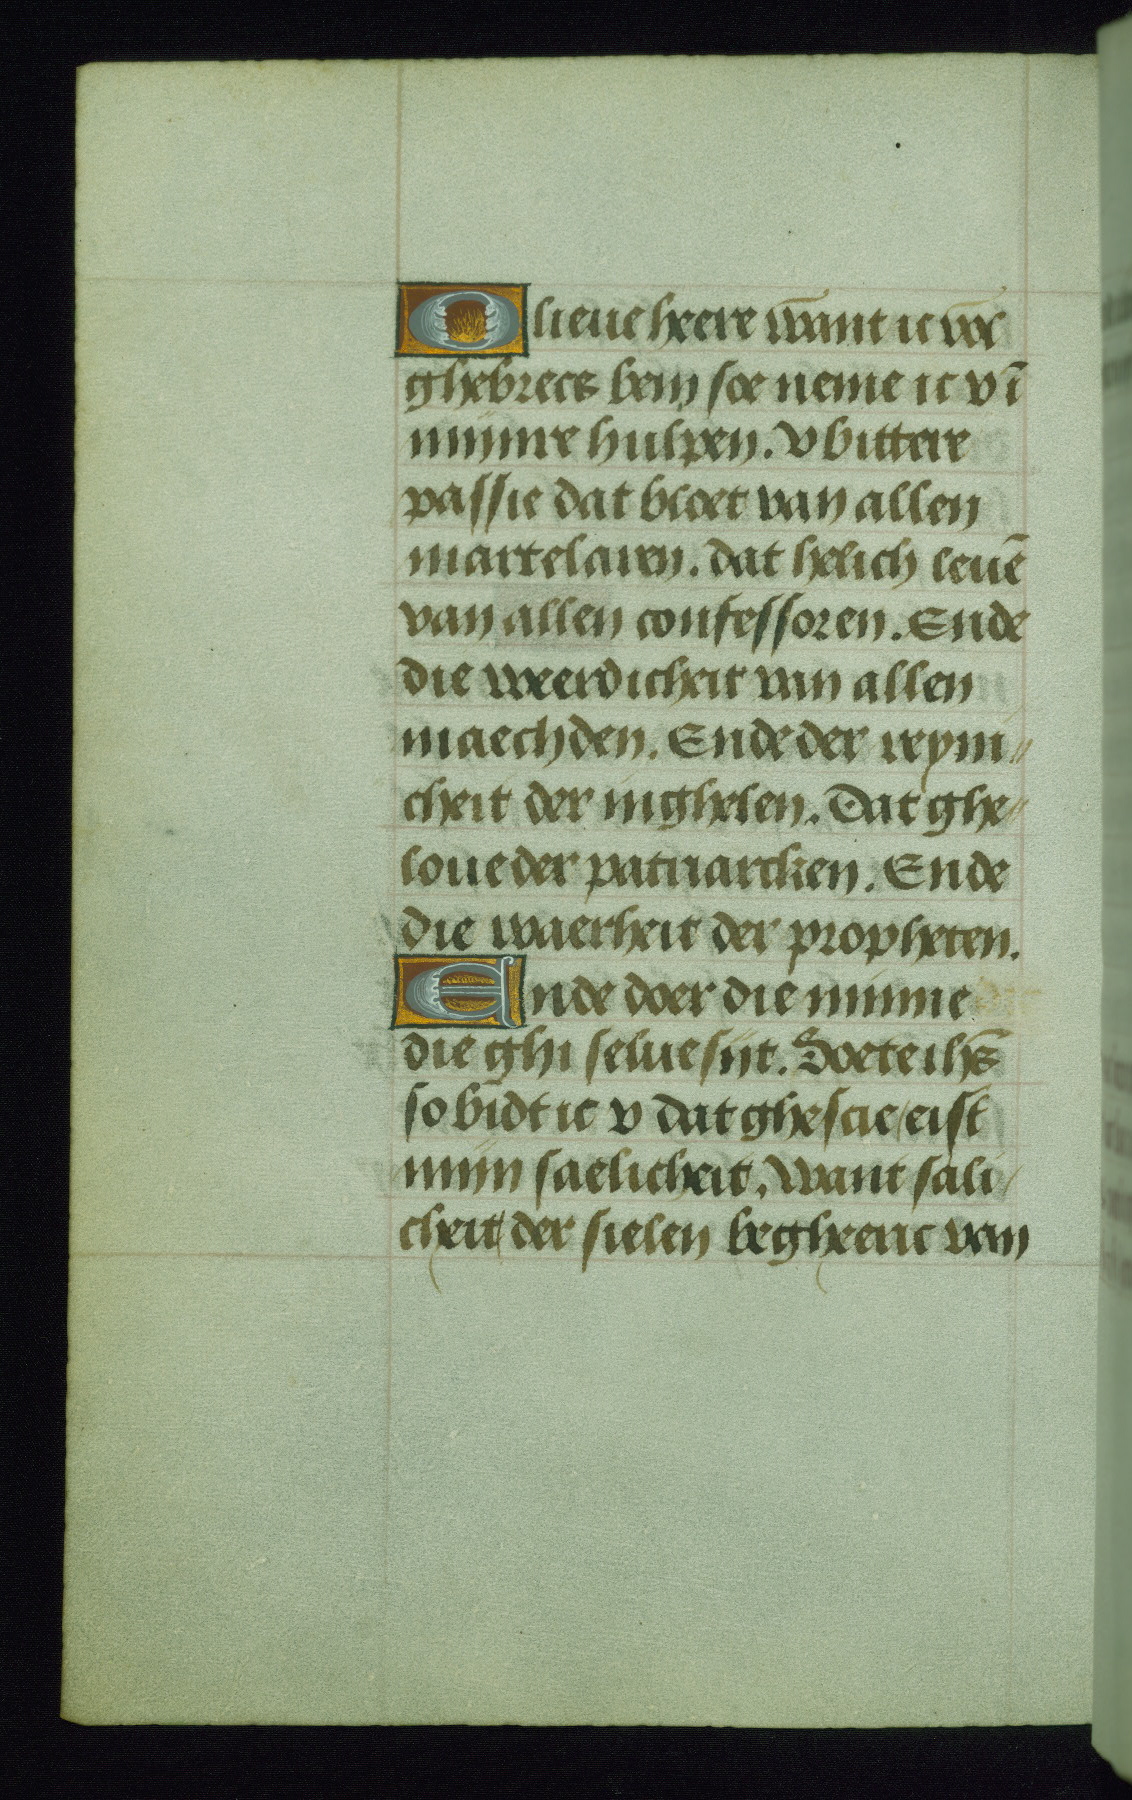 O lieue heere want ic vol
ghebrecs ben soe neme ic v ī
mijnre hulpen. v bittere
passie dat bloet van allen
martelaren. dat helich leuē
van allen confessoren. Ende
die weerdicheit van allen
maechden. Ende der reyni
cheit der inghelen. Dat ghe
loue der patriarcken. Ende
die waerheit der propheten.
Ende doer die minne
die ghi selue sijt. Soete ihs̄
so bidt ic v dat ghescie eist
mijn saelicheit. Want sali
cheit der sielen begheeric van